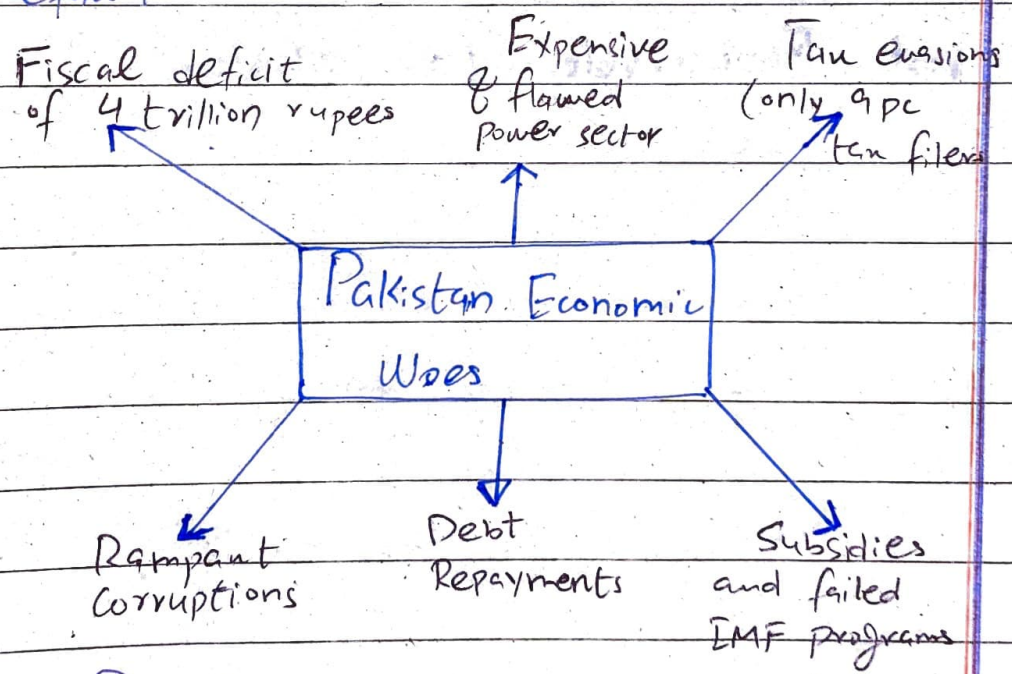 Fiscal deficit
of 4 trillion rupees
Expensive
& flawed
power sector
Tax evasions
(only 9 pc
tax filers
Pakistan Economic
Woes
Rampant
Corruptions
Debt
Repayments
Subsidies
and failed
IMF programs